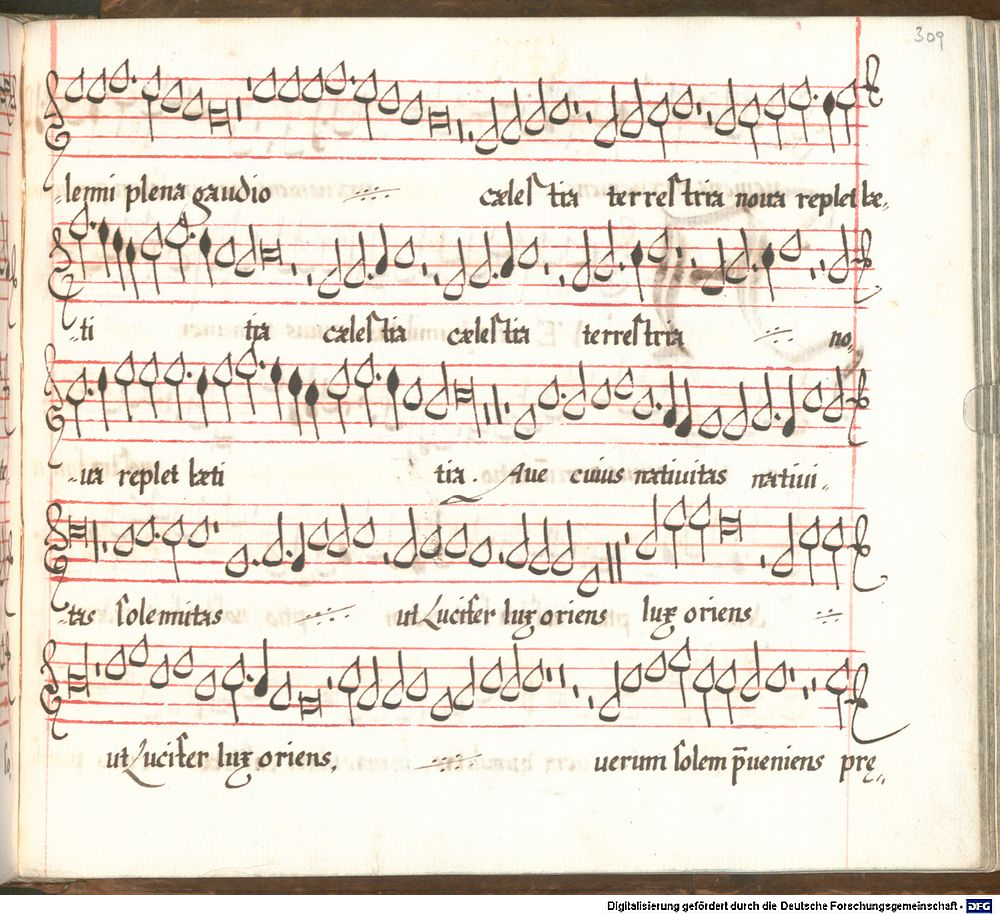 309
-lemni plena gaudio ·//· cælestia terrestria noua replet læ-
-ti tia cælestia cælestia terrestria ·//· no-
-ua replet læti tia. Aue cuius natiuitas natiui-
-tas solemnitas ·//· ut Lucifer lux oriens lux oriens ·//·
ut Lucifer lux oriens, ·//· uerum solem p̄ueniens prę-
Digitalisierung gefördert durch die Deutsche Forschungsgemeinschaft - DFG